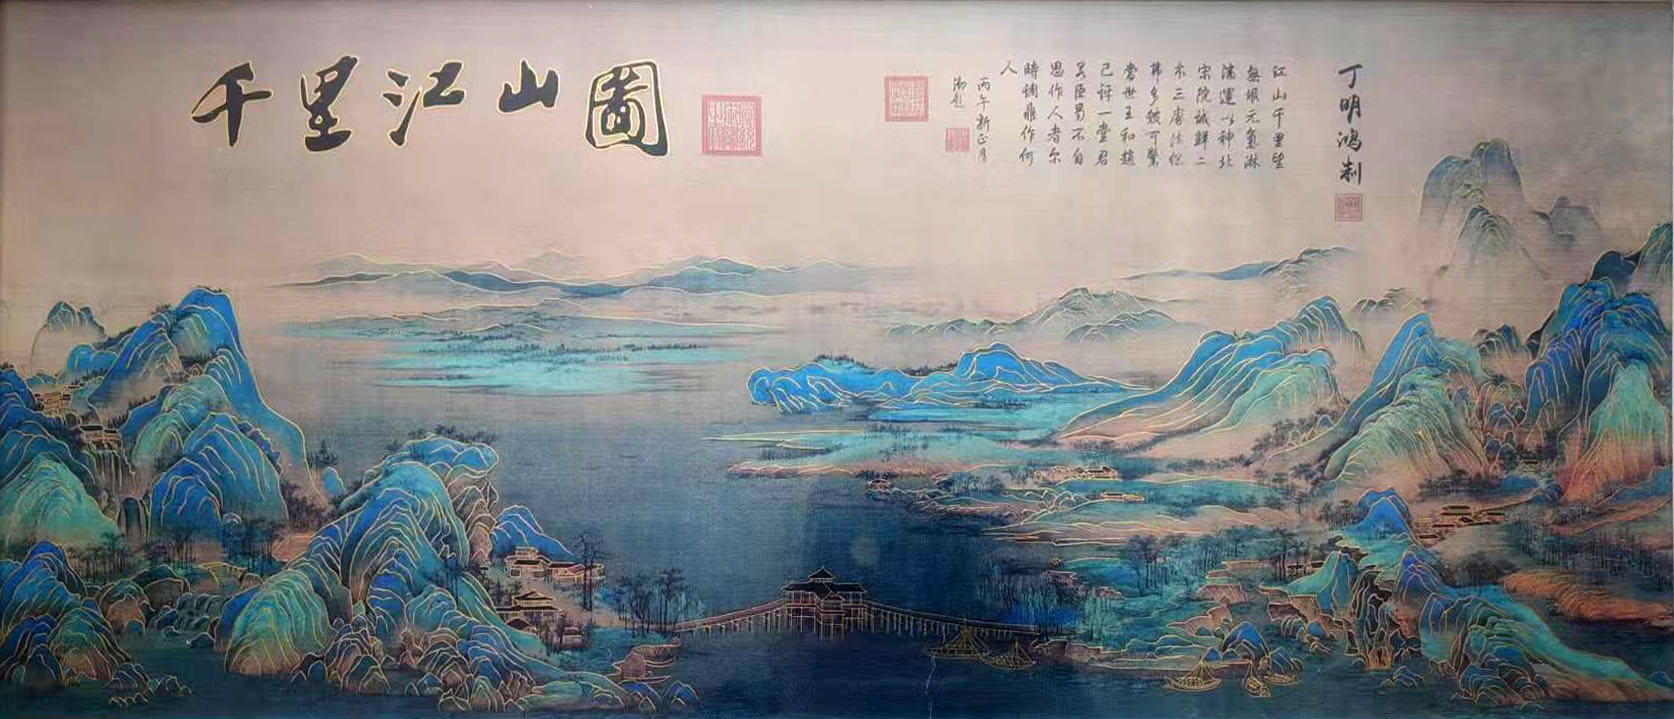 千里江山圖
丁明鴻制
江山千里望
無垠元氣淋
漓運以神北
宋院誠鮮二
本三唐法從
弗多皴可驚
當世王和趙
已訝一堂君
若臣曷不自
思作人者尔
時調鼎作何
人
丙午新正月
御題